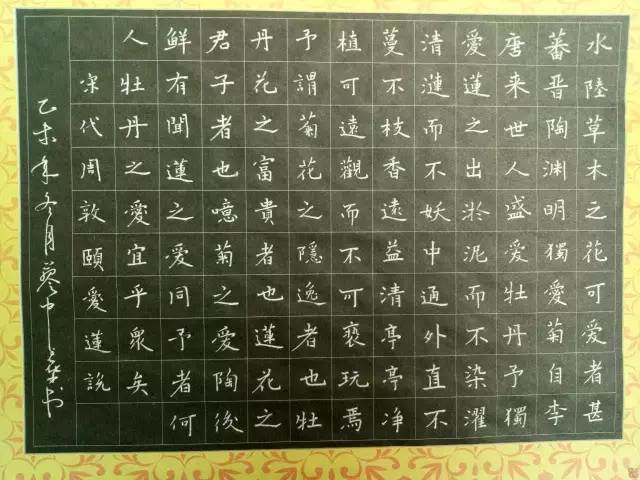 水陸草木之花可愛者甚
蕃晋陶渊明獨愛菊自李
唐来世人盛愛牡丹予獨
愛蓮之出淤泥而不染濯
清漣而不妖中通外直不
蔓不枝香遠益清亭亭净
植可遠觀而不可褻玩焉
予謂菊花之隱逸者也牡
丹花之富貴者也蓮花之
君子者也噫菊之愛陶後
鮮有聞蓮之愛同予者何
人牡丹之愛宜乎衆矣
宋代周敦頤愛蓮説
乙未年冬月